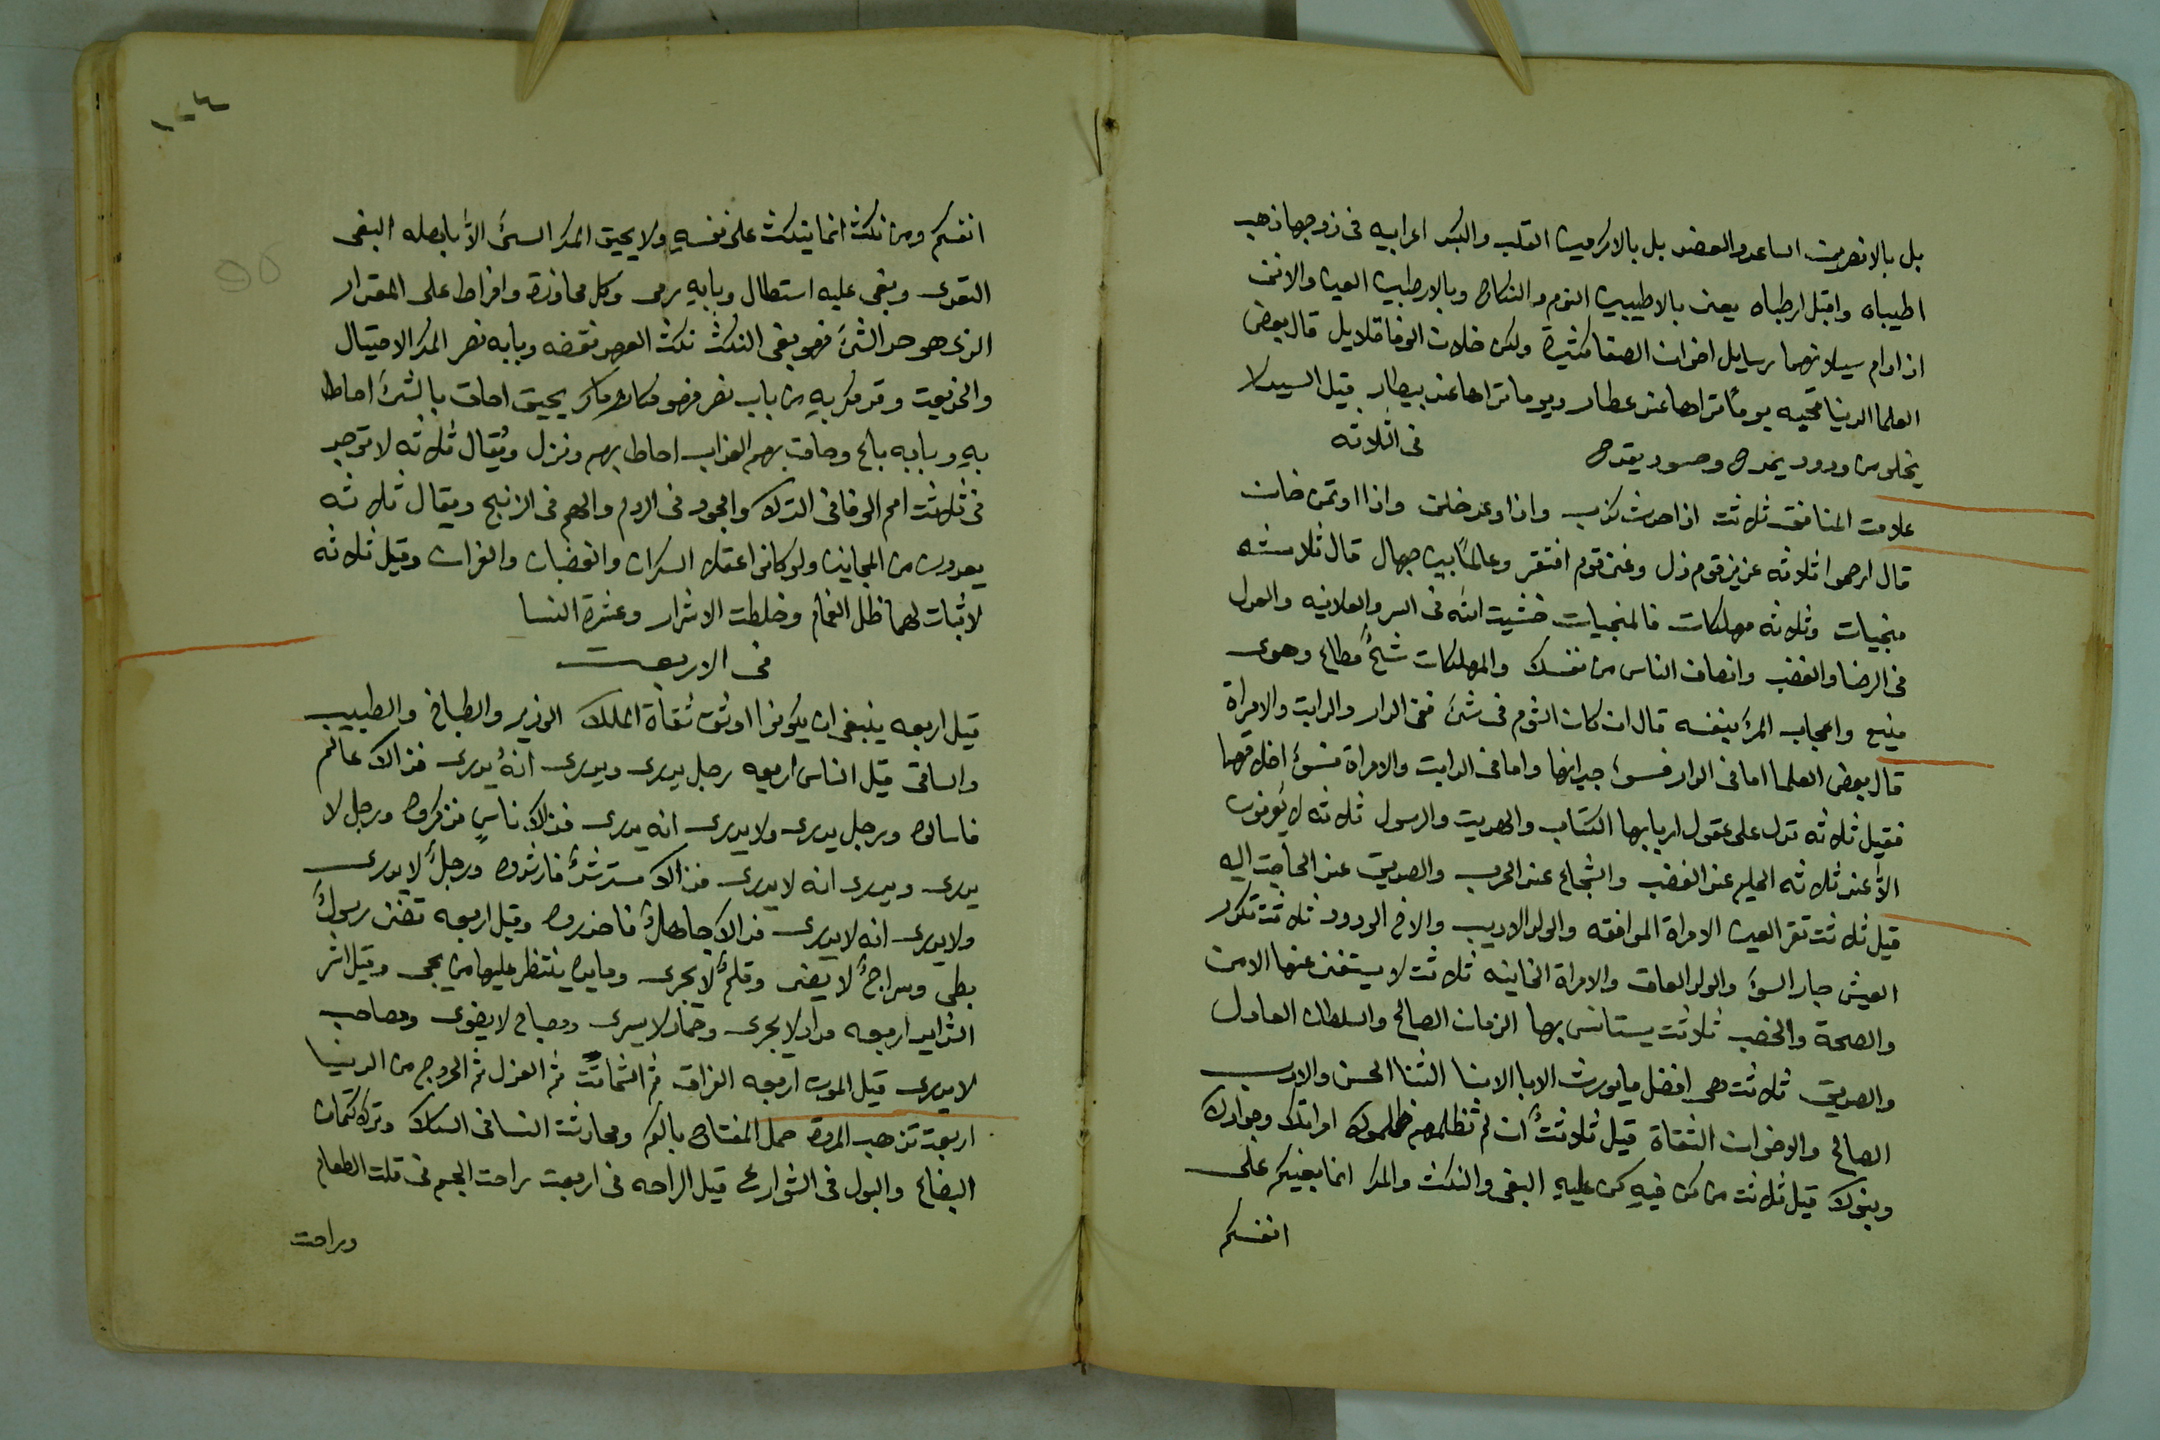 بل بالانصرين الساعد والعضد بل بالاكرمين القلب والكبد اعرابيه فى زوجها ذهب
اطيباه واقبل ارطباه يعنى بالاطيبين النوم والنكاح وبالارطبين العين والانف
اذا دام سيلانهما رسايل اخوان الصفا كثيرة ولكن خلان الوفا قلايل قال بعض
العلما الدنيا قحبه يوماً تراها عند عطار ويوما تراها عند بيطار قيل السيد لا
يخلو من ودود يمدح وحسود يقدح
فى الثلاثه
علامت المنافق ثلاثت اذا حدث كذب واذا وعد خلف واذا اوتمن خان
قال ارحموا ثلاثه عزيز قوم ذل وغنى قوم افتقر وعالماً بين جهال قال ثلاثه
منجيات وثلاثه مهلكات فالمنجيات خشيت الله فى السر والعلانيه والعدل
فى الرضا والغضب وانصاف الناس من نفسك والمهلكات شحٌ مطاع وهوى
متبع واعجاب المرئ بنفسه قال ان كان الشوم فى شئ ففى الدار والدابت والامراة
قال بعض العلما اما فى الدار فسوء جيرانها واما فى الدابت والامراة فسوء اخلاقها
فقيل ثلاثه تدل على عقول اربابها الكتاب والهديت والرسول ثلاثه لا يعرفون
الا عند ثلاثه الحليم عند الغضب والشجاع عند الحرب والصديق عند الحاجت اليه
قيل ثلاثت تقر العين الامراة الموافقه والولد الاديب والاخ الودود ثلاثت تكدر
العيش جار السوء والولد العاق والامراة الخاينه ثلاثت لا يستغنى عنها الامن
والصحة والخصب ثلاثت يستانس بها الزمان الصالح والسلطان العادل
والصديق ثلاثت هى افضل ما يورث الابا الابنا الثنا الحسن والادب
الصالح والاخوان الثقاة قيل ثلاثتٌ ان لم تظلمهم ظلموك امراتك وجوارك
وبنوك قيل ثلاثت من كن فيه كن عليه البغى والنكث والمكر انما بغيكم على
انفسكم
انفسكم ومن نكث انما ينكث على نفسه ولا يحيق المكر السئ الا باهله البغى
التعدى وبغى عليه استطال وبابه رمى وكل مجاوزة وافراط على المقدار
الذى هو حد الشئ فهو بغى النكث نكث العهد نقضه وبابه نصر المكر الاحتيال
والخديعت وقد مكر به من باب نصر فهو مكار وماكر يحيق احاق بالشئ احاط
به وبابه باع وحاقت بهم العذاب احاط بهم ونزل ويُقال ثلاثه لا توجد
فى ثلاثت امم الوفا فى الترك والجود فى الروم والهم فى الزنج ويقال ثلاثه
يعدون من المجانين ولو كانو اعقلا السكران والغضبان والغيران وقيل ثلاثه
لا ثبات لهما ظل الغمام وخلطت الاشرار وعشرة النسا
فى الاربعت
قيل اربعه ينبغى ان يكونوا اوثق ثقاة الملك الوزير والطباخ والطبيب
والساقى قيل الناس اربعه رجل يدرى ويدرى انهُ يدرى فذالك عالم
فاسالوه ورجل يدرى ولا يدرى انه يدرى فذالك ناسٍ فذكروه ورجل لا
يدرى ويدرى انه لا يدرى فذالك مسترشدٌ فارشدوه ورجلٌ لا يدرى
ولا يدرى انه لا يدرى فذالك جاهلٌ فاحذروه وقيل اربعه تضنى رسولٌ
بطى وسراجٌ لا يضى وقلمٌ لا يجرى ومايده ينتظر عليها من يجى وقيل اشر
الشدايد اربعه مداد لا يجرى وحمار لا يسرى ومصباح لا يضوى ومصاحب
لا يدرى قيل الموت اربعه الفراق ثم الشماتت ثم العزل ثم الخروج من الدنيا
اربعت تذهب المروه حمل المفتاح بالكم ومحادثت النسا فى السكك وترك كتمان
البضاع والبول فى الشوارع قيل الراحه فى اربعت راحت الجسم فى قلت الطعام
وراحت